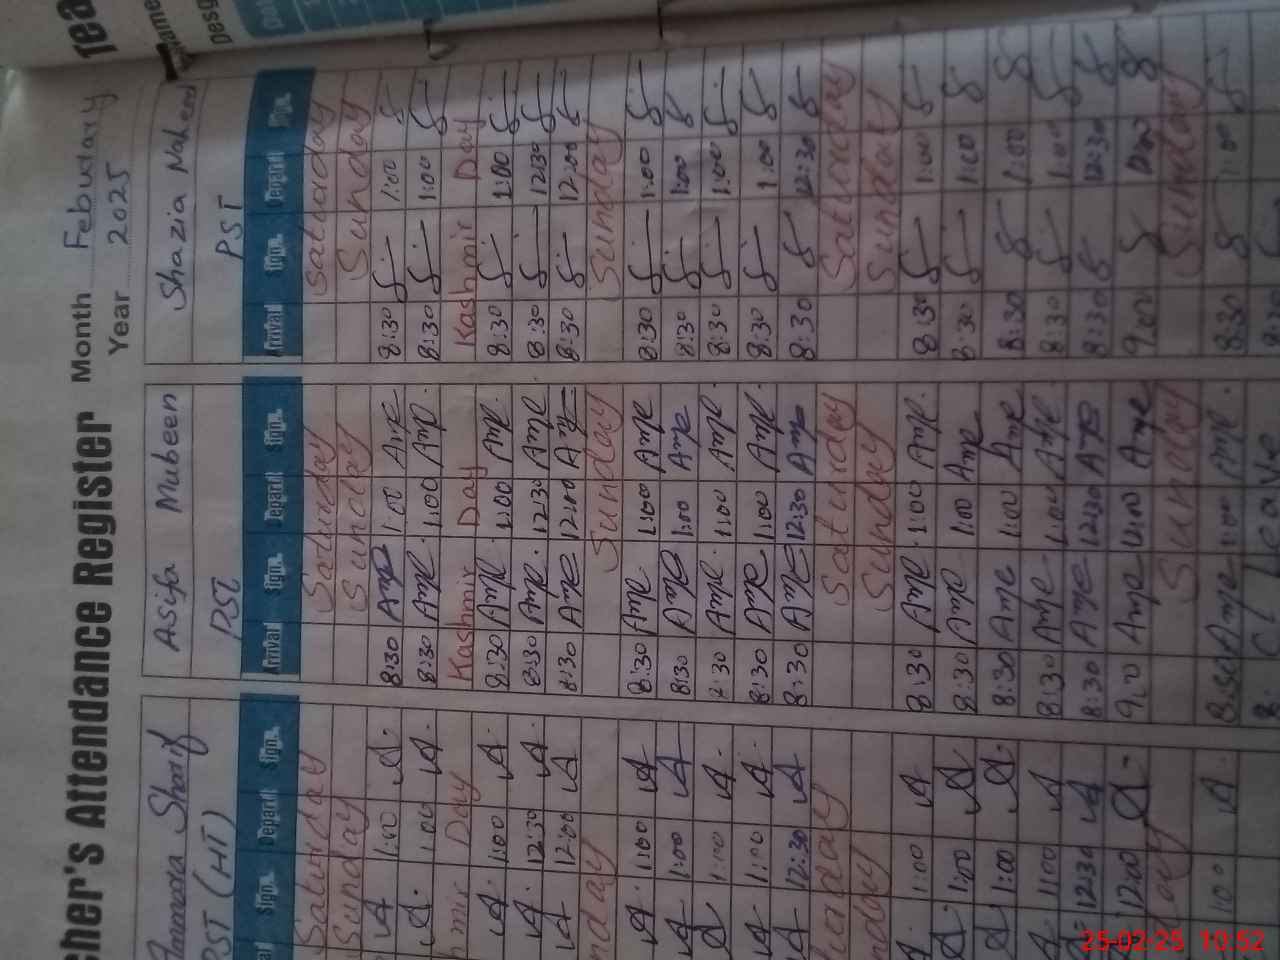 cher's Attendance Register Month Febudary
Year 2025
Tea
Desg
Ammara Sharif Asifa Mubeen Shazia Naheed
PST (HT) PST PST
Sign. Depart Sign. Arrival Sign. Depart Sign. Arrival Sign. Depart Sign.
Saturday Saturday Saturday
Sunday Sunday Sunday
A 1:00 A. 8:30 Ame 1:00 Ame 8:30 1:00
A. 1:00 A. 8:30 Ame. 1:00 Ame. 8:30 1:00
mir Day Kashmir Day Kashmir Day
A. 1:00 A 8:30 Ame. 1:00 Ame. 8:30 1:00
A. 12:30 A. 8:30 Ame. 12:30 Ame. 8:30 12:30
A 12:00 A 8:30 Ame 12:00 Ame 8:30 12:00
nday Sunday Sunday
A. 1:00 A 8:30 Ame. 1:00 Ame 8:30 1:00
A 1:00 A 8:30 Ame 1:00 Ame 8:30 1:00
A 1:00 A. 8:30 Ame. 1:00 Ame. 8:30 1:00
A 1:00 A. 8:30 Ame 1:00 Ame. 8:30 1:00
A 12:30 A 8:30 Ame 12:30 Ame 8:30 12:30
urday Saturday Saturday
nday Sunday Sunday
A. 1:00 A 8:30 Ame. 1:00 Ame. 8:30 1:00
A. 1:00 A 8:30 Ame 1:00 Ame 8:30 1:00
A. 1:00 A. 8:30 Ame 1:00 Ame 8:30 1:00
A 1:00 A 8:30 Ame 1:00 Ame 8:30 1:00
A 12:30 A 8:30 Ame 12:30 Ame 8:30 12:30
A 12:00 A. 9:00 Ame 12:00 Ame 9:00 12:00
day Sunday Sunday
1:00 A. 8:30 Ame 1:00 Ame. 8:30 1:00
C/Leave 8:30
25-02-25 10:52